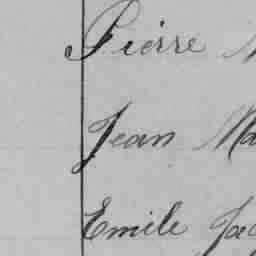 Pierre
Jean Ma
Emile Jac